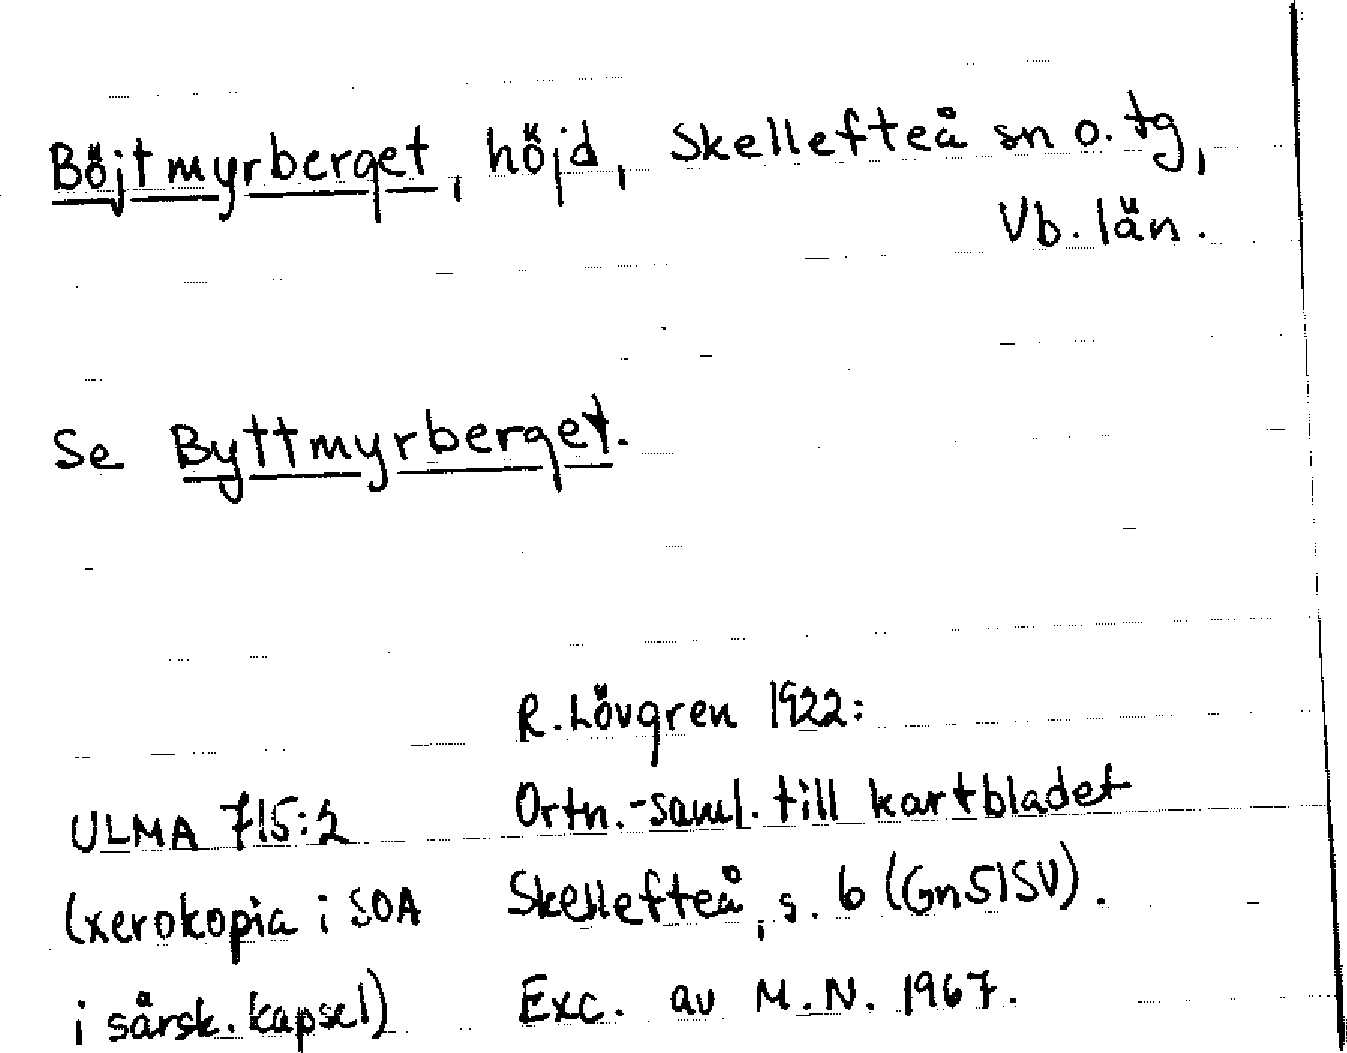 Böjtmyrberget, höjd, Skellefteå sn o. tg,
Vb. län.
Se Byttmyrberget.
R. Lövgren 1922:
Ortn.-saml. till kartbladet
Skellefteå, s. 6 (Gn51SV).
Exc. av M.N. 1967.
ULMA 715:2
(xerokopia i SOA
i särsk. kapsel)